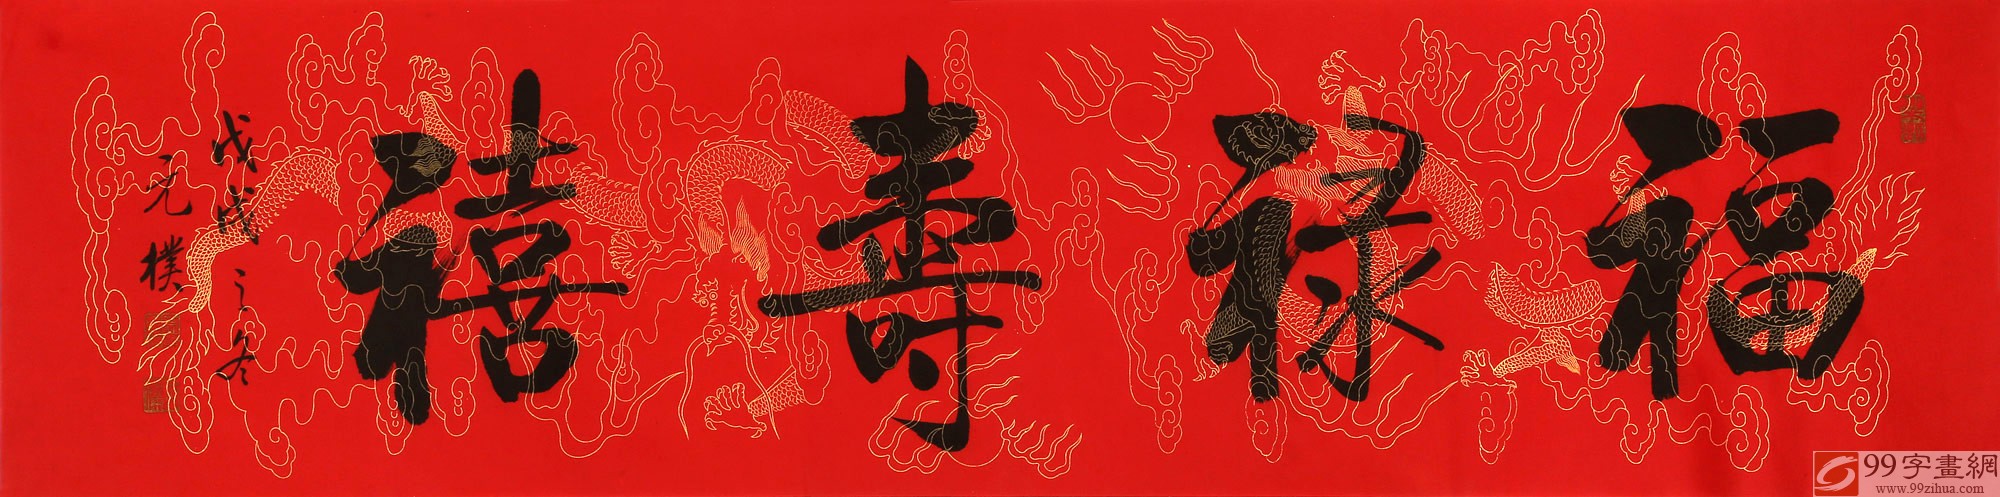 福祿壽禧
戊戌之冬
元樸
99字畫網
www.99zihua.com